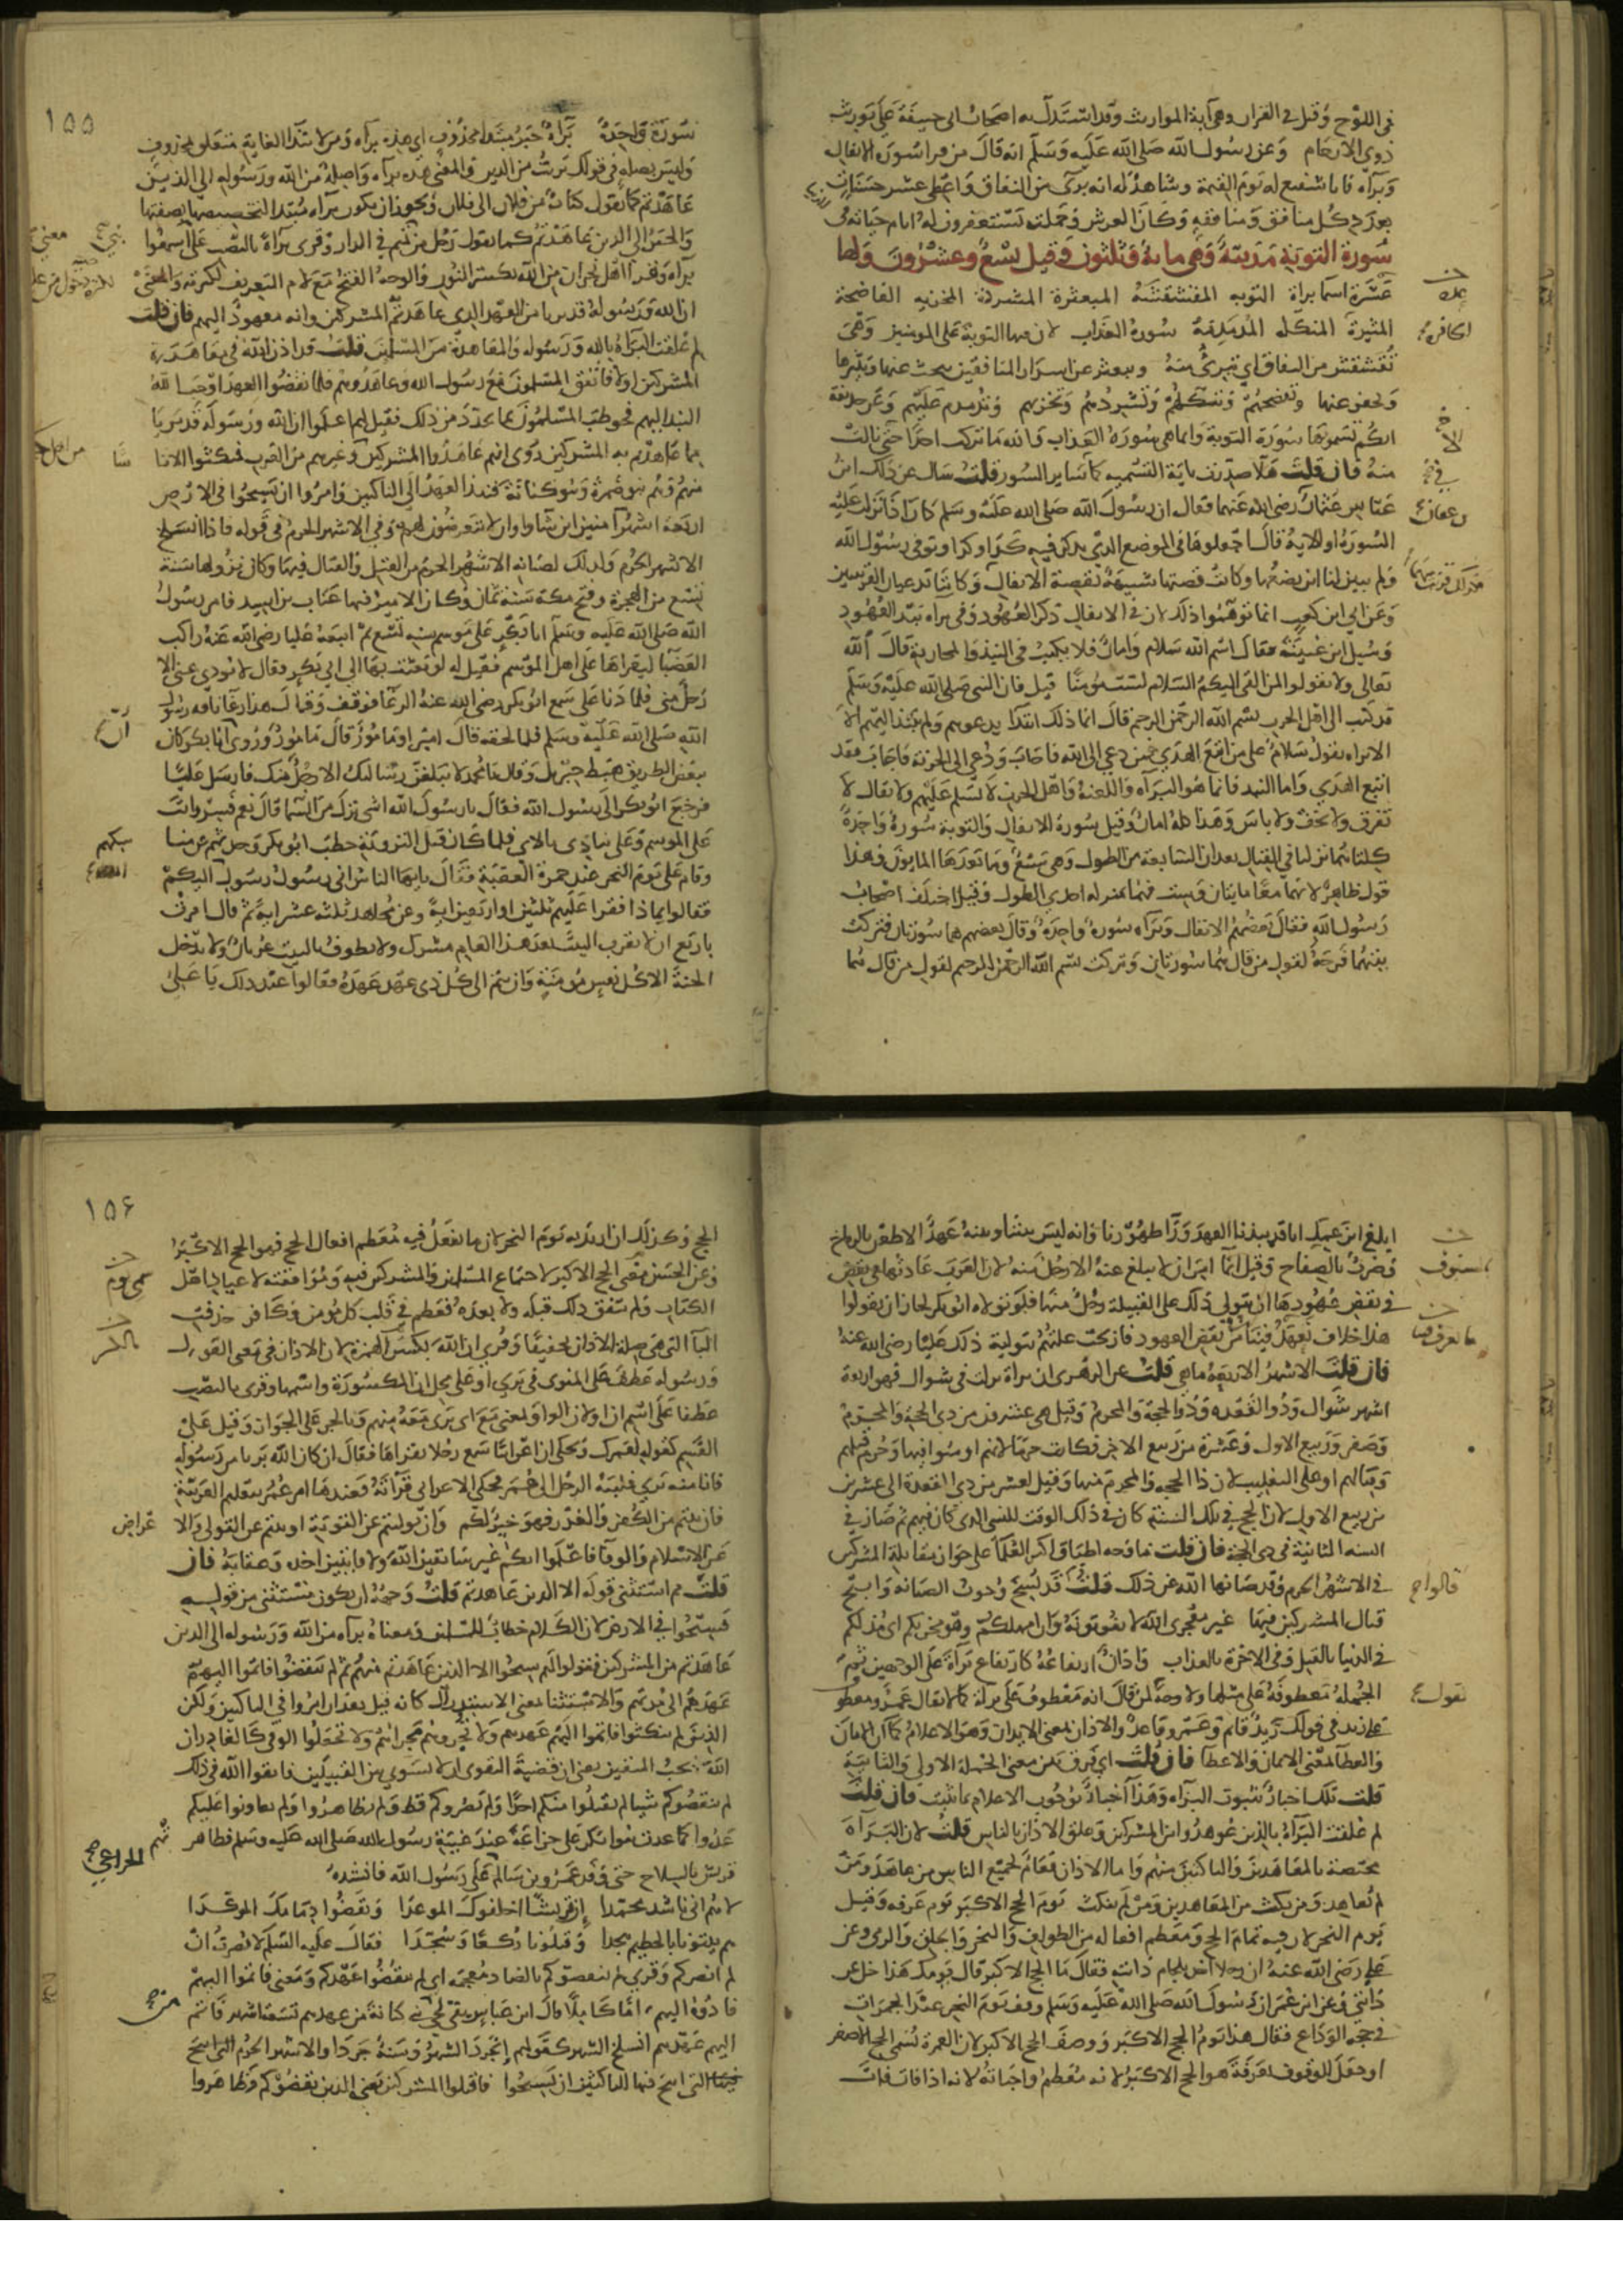 في اللوح وقيل في القرآن وهي آية المواريث وقد استدل به اصحاب ابي حنيفة على توريث
ذوي الارحام وعن رسول الله صلى الله عليه وسلم انه قال من قرأ سورة الانفال
وبرآة فانا شفيع له يوم القيمة وشاهد له انه برئ من النفاق واعطي عشر حسنات
بعدد كل منافق ومنافقة وكان العرش وحملته يستغفرون له ايام حياته في
سورة التوبة مدنية وهي ماية وثلثون وقيل تسع وعشرون ولها
عشرة اسما براة التوبه المقشقشة المبعثرة المشردة المخزيه الفاضحة
المثيرة المنكلة المدمدمة سورة العذاب لان فيها التوبة على المومنين وهي
تقشقش من النفاق اي تبرئ منه وتبعثر عن اسرار المنافقين تبحث عنها وتثيرها
وتحفر عنها وتفضحهم وتنكلهم وتشردهم وتخزيهم وتدمدم عليهم وعن حذيفة
انكم تسمونها سورة التوبة وانما هي سورة العذاب والله ما تركت احدا حتى نالت
منه فان قلت هلا صدرت باية التسميه كما ساير السور قلت سال عن ذلك ابن
عباس عثمان رضي الله عنهما فقال ان رسول الله صلى الله عليه وسلم كان اذا نزلت عليه
السورة او الاية قال اجعلوها في الموضع الذي يذكر فيه كذا وكذا وتوفي رسول الله
ولم يبين لنا اين نضعها وكانت قصتها شبيهة بقصة الانفال وكانتا تدعيان القرينتين
وعن ابي ابن كعب انما توهموا ذلك لان في الانفال ذكر العهود وفي براة نبذ العهود
وسيل ابن عيينة فقال اسم الله سلام وامان فلا يكتب في النبذ والمحاربة قال الله
تعالى ولا تقولوا لمن القى اليكم السلام لست مومنا قيل فان النبي صلى الله عليه وسلم
قد كتب الى اهل الحرب بسم الله الرحمن الرحيم قال انما ذلك ابتدا يدعوهم ولم ينبذ اليهم الا
الا تراه يقول سلام على من اتبع الهدى فمن دعي الى الله فاجاب ودعي الى الجزية فاجاب فقد
اتبع الهدى واما النبذ فانما هو البرآة واللعنة واهل الحرب لا تسلم عليهم ولا يقال لا
تفرق ولا تخف ولا باس وهذا كله امان وقيل سورة الانفال والتوبة سورة واحدة
كلتاهما نزلتا في القتال تعدان السابعة من الطول وهي سبع وما بعدها المايون وهذا
قول ظاهر لانهما معا مايتان وست فهما بمنزلة احدى الطول وقيل اختلف اصحاب
رسول الله فقال بعضهم الانفال وبراه سورة واحدة وقال بعضهم هما سورتان فتركت
بينهما فرجة لقول من قال هما سورتان وتركت بسم الله الرحمن الرحيم لقول من قال هما
١٥٥
سورة واحدة برآة خبر مبتدا محذوف اي هذه برآه ومن لابتدا الغاية متعلق بمحذوف
وليس بصله في قولك برئت من الدين والمعنى هذه برآه واصلة من الله ورسوله الى الذين
عاهدتم كما يقول كتاب من فلان الى فلان ويجوز ان يكون برآه مبتدا لتخصيصها بصفتها
والخبر الى الذين عاهدتم كما يقول رجل من تميم في الدار وقرى برآة بالنصب على اسمعوا
برآه وقرا اهل نجران من الله بكسر النون والوجه الفتح مع لام التعريف لكثرته والمعنى
ان الله ورسوله قد بريا من العهد الذي عاهدتم المشركين وانه معهود اليهم فان قلت
لم علقت البرآة بالله ورسوله والمعاهدة من المسلمين قلت قد اذن الله في معاهدة
المشركين اولا فاتفق المسلمون مع رسول الله وعاهدوهم فلما نقضوا العهد اوجب الله
النبذ اليهم فخوطب المسلمون بما تجدد من ذلك فقيل لهم اعلموا ان الله ورسوله قد بريا
مما عاهدتم به المشركين روى انهم عاهدوا المشركين وغيرهم من العرب فنكثوا الا ناسا
منهم وهم بنو ضمرة وبنو كنانة فنبذ العهد الى الناكثين وامروا ان يسيحوا في الارض
اربعة اشهر آمنين اين شاوا وان لا يتعرض لهم وهي الاشهر الحرم في قوله فاذا انسلخ
الاشهر الحرم وذلك لصيانه الاشهر الحرم من القتل والقتال فيها وكان نزولها سنة
تسع من الهجرة وفتح مكة سنة ثمان وكان الامير فيها عتاب بن اسيد فامر رسول
الله صلى الله عليه وسلم ابا بكر على موسم سنه تسع ثم اتبعه عليا رضي الله عنه راكب
العضبا ليقراها على اهل الموسم فقيل له لو بعثت بها الى ابي بكر فقال لا يودي عني الا
رجل مني فلما دنا علي سمع ابو بكر رضي الله عنه الرغا فوقف وقال هذا رغا ناقة رسول
الله صلى الله عليه وسلم فلما لحقه قال امير او مامور قال مامور وروى ان ابا بكر كان
ببعض الطريق هبط جبريل وقال يا محمد لا يبلغن رسالتك الا رجل منك فارسل عليا
فرجع ابو بكر الى رسول الله فقال يا رسول الله اشي نزل من السما قال نعم فسر وانت
على الموسم وعلي ينادي بالاي فلما كان قبل التروية خطب ابو بكر وحدثهم عن مناسكهم
وقام علي يوم النحر عند جمرة العقبة فقال يا ايها الناس اني رسول رسول الله اليكم
فقالوا بماذا فقرا عليهم ثلثين او اربعين اية وعن مجاهد ثلثه عشر اية ثم قال امرت
باربع ان لا يقرب البيت بعد هذا العام مشرك ولا يطوف بالبيت عريان ولا يدخل
الجنة الا كل نفس مومنة وان يتم الى كل ذي عهد عهده فقالوا عند ذلك يا علي
ابلغ ابن عمك انا قد نبذنا العهد ورآ ظهورنا وانه ليس بيننا وبينه عهد الا طعن بالرماح
وضرب بالصفاح وقيل انما امر ان لا يبلغ عنه الا رجل منه لان العرب عادتها في نقض
في نقض عهودها ان يتولى ذلك على القبيلة رجل منها فلو تولاه ابو بكر لجاز ان يقولوا
هذا خلاف نعهد فينا من نقض العهود فازيحت علتهم بتولية ذلك عليا رضي الله عنه
فان قلت الاشهر الاربعة ما هي قلت عن الزهري ان براة نزلت في شوال فهو اربعة
اشهر شوال وذو القعده وذو الحجة والمحرم وقيل هي عشرون من ذي الحجة والمحرم
وصفر وربيع الاول وعشرة من ربيع الاخر وكانت حرما لانهم اومنوا فيها وحرم قتلهم
وقتالهم او على التغليب لان ذا الحجه والمحرم منها وقيل لعشر من ذي القعدة الى عشر من
من ربيع الاول لان الحج في تلك السنة كان في ذلك الوقت للنسي الذي كان فيهم ثم صار في
السنه الثانية في ذي الحجة فان قلت ما وجه اطباق اكثر العلما على جواز مقاتلة المشركين
في الاشهر الحرم وقد صانها الله عن ذلك قلت قد نسخ وجوب الصيانه وابيح
قتال المشركين فيها غير معجزي الله لا تفوتونه وان امهلكم وهو مخزيكم اي مذلكم
في الدنيا بالقتل وفي الاخرة بالعذاب واذان ارتفاعه كارتفاع برآة على الوجهين ثم
الجملة معطوفة على مثلها ولا وجه لمن قال انه معطوف على برآة كما لا يقال عمرو معطوف
على زيد في قولك زيد قائم وعمرو قاعد والاذان بمعنى الايذان وهو الاعلام كما ان الامان
والعطآ بمعنى الايمان والاعطآ فان قلت اي فرق بين معنى الجملة الاولى والثانية
قلت تلك اخبار بثبوت البرآه وهذا اخبار بوجوب الاعلام بما ثبت فان قلت
لم علقت البرآة بالذين عوهدوا من المشركين وعلق الاذان بالناس قلت لان البرآة
مختصة بالمعاهدين والناكثين منهم واما الاذان فعام لجميع الناس من عاهد ومن
لم يعاهد ومن نكث من المعاهدين ومن لم ينكث يوم الحج الاكبر يوم عرفه وقيل
يوم النحر لان فيه تمام الحج ومعظم افعاله من الطواف والنحر والحلق والرمي وعن
علي رضي الله عنه ان رجلا اخذ بلجام دابته فقال ما الحج الاكبر قال يومك هذا خل عن
دابتي وعن ابن عمر ان رسول الله صلى الله عليه وسلم وقف يوم النحر عند الجمرات
في حجه الوداع فقال هذا يوم الحج الاكبر ووصف الحج الاكبر لان العمرة تسمى الحج الاصغر
او جعل الوقوف بعرفة هو الحج الاكبر لانه معظم واجباته لانه اذا فات فات
١٥٦
الحج وكذلك ان اريد به يوم النحر لان ما يفعل فيه معظم افعال الحج فهو الحج الاكبر
وعن الحسن سمي الحج الاكبر لاجتماع المسلمين والمشركين فيه وموافقته لاعياد اهل
الكتاب ولم يتفق ذلك قبله ولا بعده فعظم في قلب كل مومن وكافر حذفت
البآ التي هي صلة الاذان تخفيفا وقري ان الله بكسر الهمزة لان الاذان في معنى القول
ورسوله عطف على المنوي في بري او على محل ان المكسورة واسمها وقرى بالنصب
عطفا على اسم ان او لان الواو بمعنى مع اي بري معه منهم وبالجر على الجوار وقيل على
القسم كقوله لعمرك ويحكى ان اعرابيا سمع رجلا يقراها فقال ان كان الله بريا من رسوله
فانا منه بري فلببه الرجل الى عمر فحكى الاعرابي قراته فعندها امر عمر بتعليم العربية
فان تبتم من الكفر والغدر فهو خير لكم وان توليتم عن التوبة او تبتم عن التولي والاعراض
عن الاسلام والوفآ فاعلموا انكم غير سابقين الله ولا فايتين اخذه وعقابه فان
قلت مم استثنى قوله الا الذين عاهدتم قلت وجهه ان يكون مستثنى من قوله
فسيحوا في الارض لان الكلام خطاب للمسلمين ومعناه برآه من الله ورسوله الى الذين
عاهدتم من المشركين فقولوا لهم سيحوا الا الذين عاهدتم منهم ثم لم ينقضوا فاتموا اليهم
عهدهم الى مدتهم والاستثنا بمعنى الاستدراك كانه قيل بعد ان امروا في الناكثين ولكن
الذين لم ينكثوا فاتموا اليهم عهدهم ولا تجروهم مجراهم ولا تجعلوا الوفي كالغادر ان
الله يحب المتقين يعني ان قضية التقوى ان لا يسوي بين القبيلين فاتقوا الله في ذلك
لم ينقصوكم شيا لم يقتلوا منكم احدا ولم يضروكم قط ولم يظاهروا ولم يعاونوا عليكم
عدوا كما عدت بنو بكر على خزاعة عند غيبة رسول الله صلى الله عليه وسلم فظاهر
قريش بالسلاح حتى وفد عمرو بن سالم على رسول الله فانشده
لاهم اني ناشد محمدا ان قريشا اخلفوك الموعدا ونقضوا ذمامك الموكدا
هم بيتونا بالحطيم هجدا وقتلونا ركعا وسجدا فقال عليه السلم لا نصرت ان
لم انصركم وقري لم ينقضوكم بالضاد معجمه اي لم ينقضوا عهدكم ومعنى فاتموا اليهم
فادوه اليهم تاما كاملا قال ابن عباس بقي لحي من كنانة من عهدهم تسعة اشهر فاتم
اليهم عهدهم انسلخ الشهر كقولهم انجرد الشهر وسنة جردا والاشهر الحرم التي ابيح
فيها للناكثين ان يسيحوا فاقتلوا المشركين يعني الذين نقضوكم وظاهروا